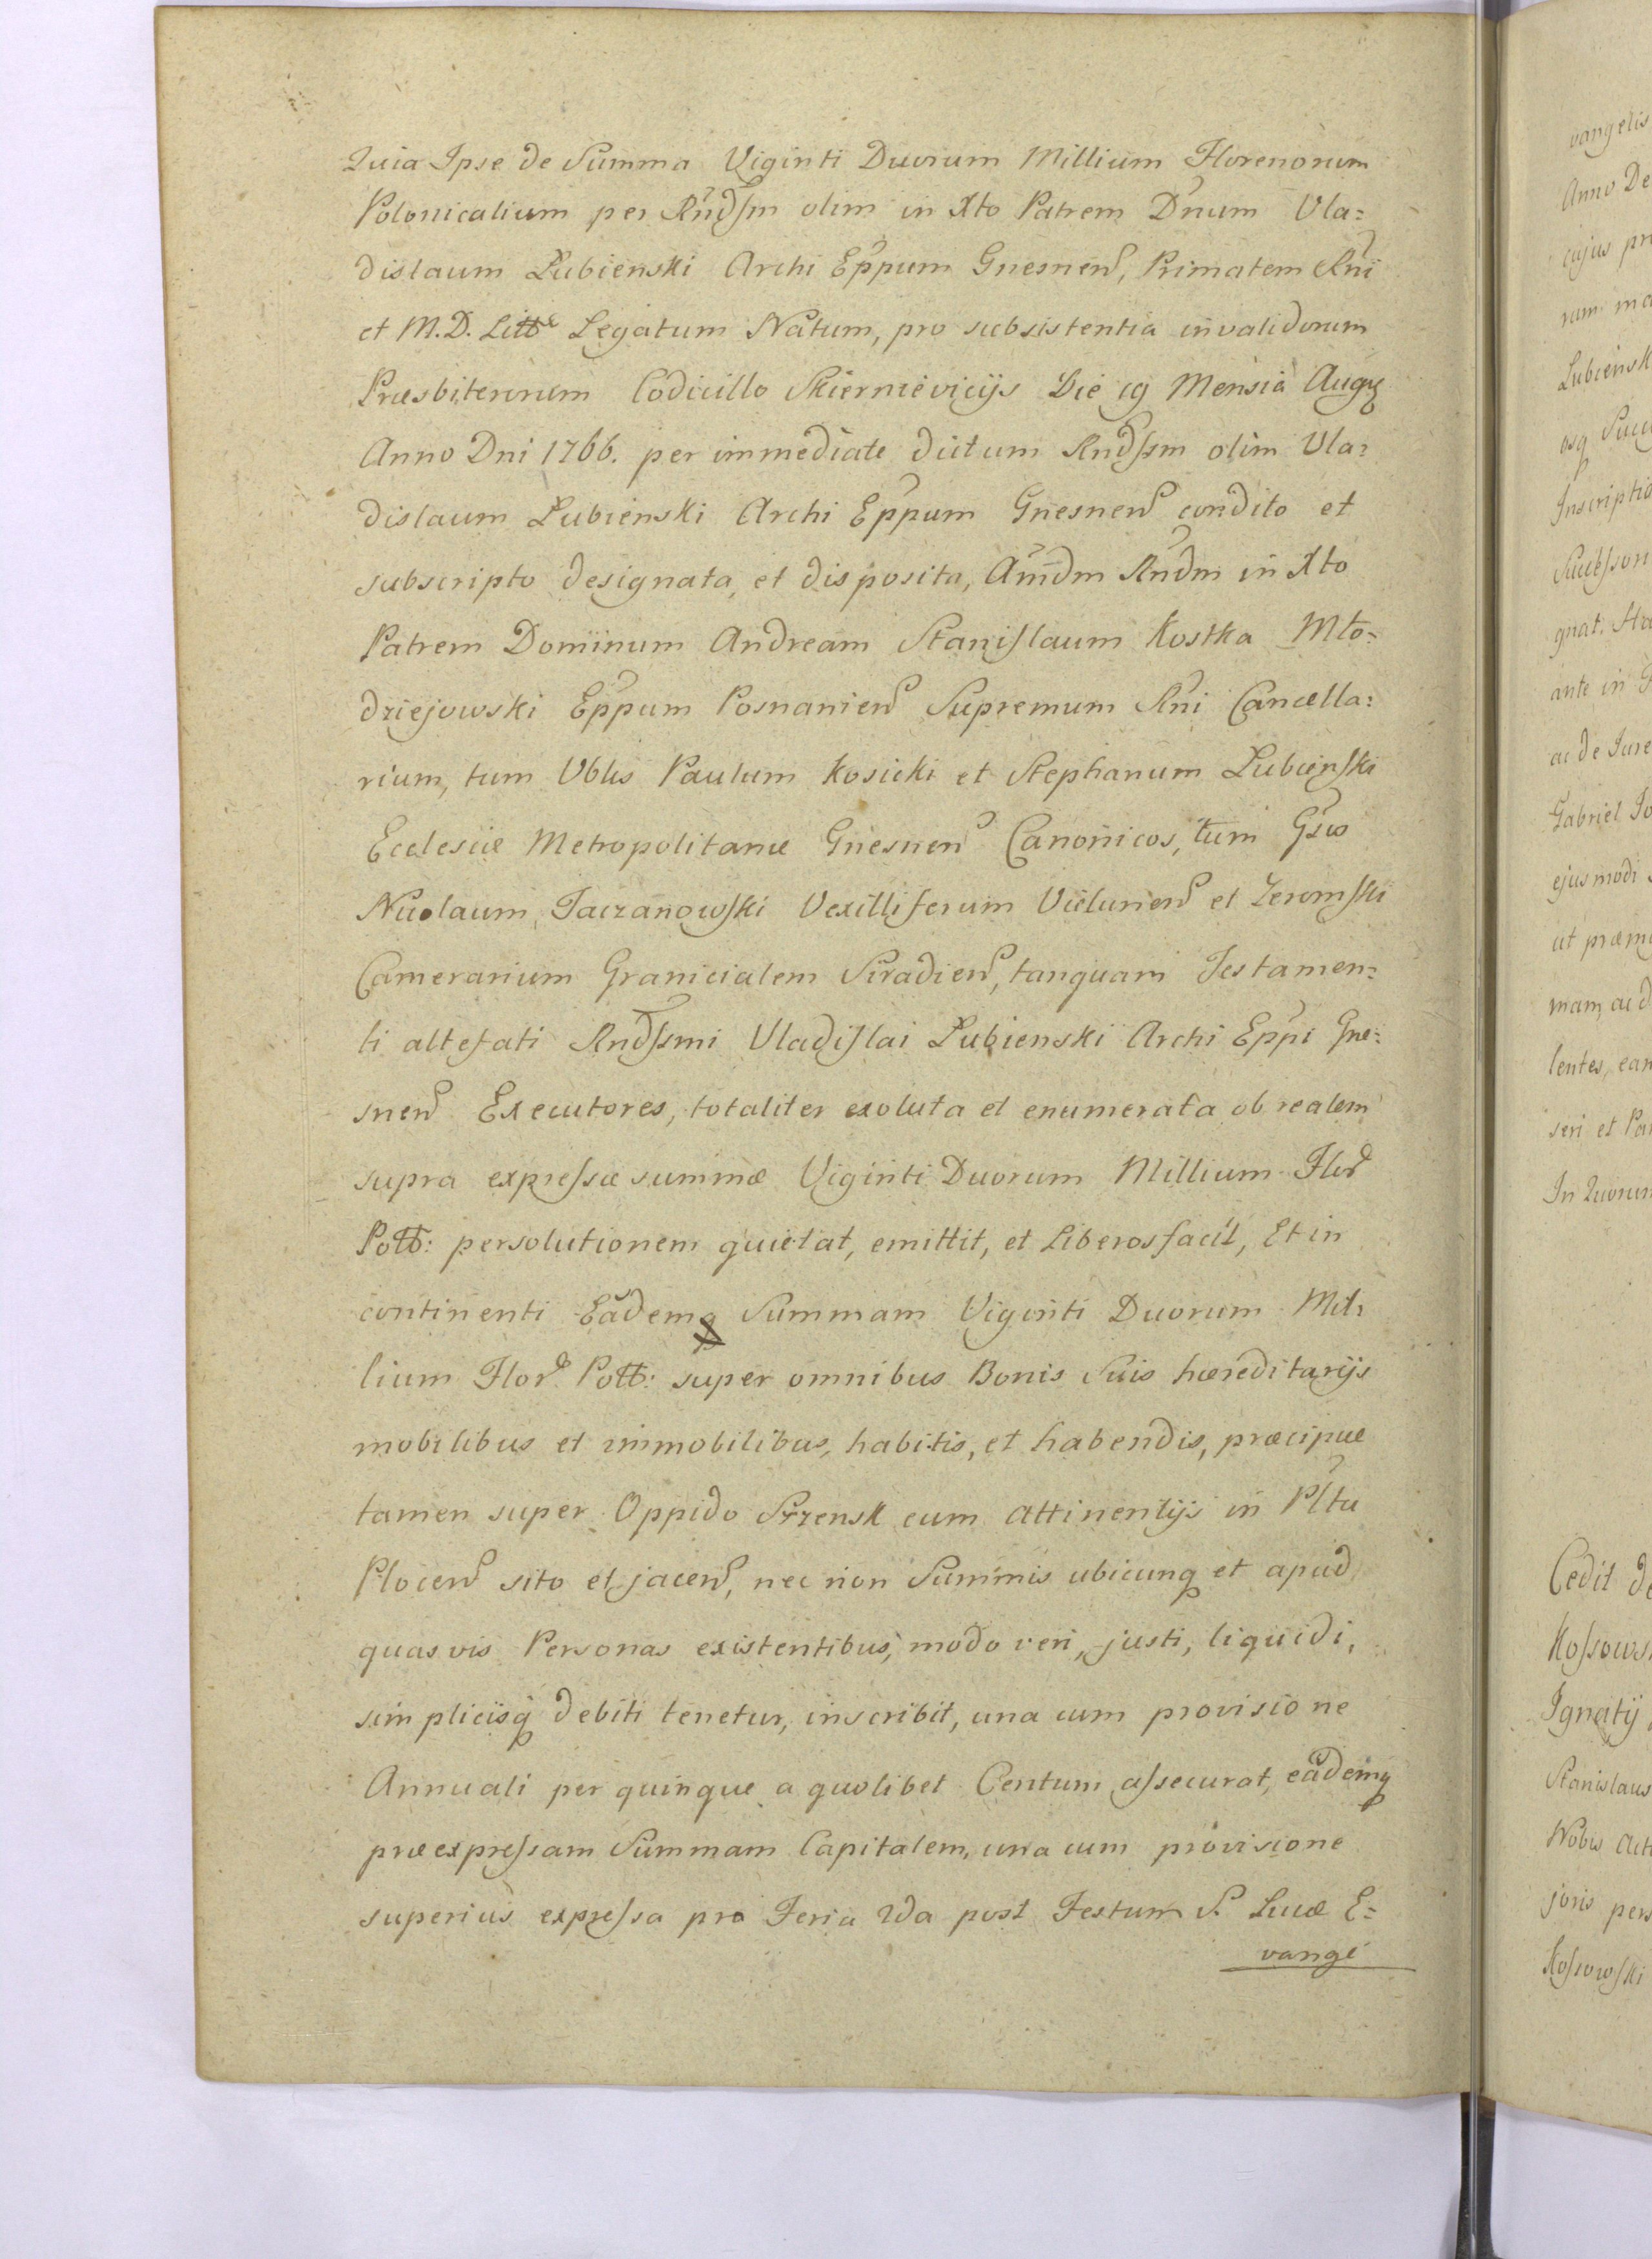 Quia Ipse de Summa Viginti Duorum Millium Florenorum
Polonicalium per Rndssm olim in Xto Patrem Dnum Vla=
dislaum Łubienski Archi Eppum Gnesnen, Primatem Rni
et M.D. Litt Legatum Natum, pro subsistentia invalidorum
Præsbiterorum Codicillo Skiernieviciis Die 19 Mensis Augq
Anno Dni 1766. per immediate dictum Rndssm olim Vla=
dislaum Łubienski Archi Eppum Gnesnen condito et
subscripto designata, et disposita, Amdm Rndm in Xto
Patrem Dominum Andream Stanislaum Kostka Mło=
dziejowski Eppum Posnanien Supremum Rni Cancella=
rium, tum Vbles Paulum Kosicki et Stephanum Łubienski
Ecclesiæ Metropolitanæ Gnesnen Canonicos, tum Gsos
Nicolaum Taczanowski Vexilliferum Vielunen et Zeromski
Camerarium Granicialem Siradien, tanquam Testamen=
ti altefati Rndssmi Vladislai Łubienski Archi Eppi Gne=
snen Executores, totaliter exoluta et enumerata ob realem
supra expressæ summæ Viginti Duorum Millium Flor
Poll: persolutionem quietat, emittit, et Liberos facit, Et in
continenti Eadem Summam Viginti Duorum Mil=
lium Flor Poll: super omnibus Bonis Suis hæreditarijs
mobilibus et immobilibus, habitis, et habendis, præcipue
tamen super Oppido Srzensk cum attinentijs in Pltu
Plocen sito et jacen, nec non Summis ubicunq et apud
quasvis Personas existentibus, modo veri, justi, liquidi,
simplicisq debiti tenetur, inscribit, una cum provisione
Annuali per quinque a quolibet Centum assecurat, eademq
præexpressam Summam Capitalem, una cum provisione
superius expressa pro Feria 2da post Festum S. Lucæ E=
vange
vangelis
Anno De
cujus pr
rum ma
Lubiensk
osq Succ
Inscriptio
Successon
gnat. Sta
ante in G
ac de Jure
Gabriel Jo
ejusmodi
ut præmi
mam, ac d
lentes, ean
seri et Par
In Quorum
Cedit de
Kossows
Ignatij
Stanislaus
Nobis Act
joris pers
Kossowski